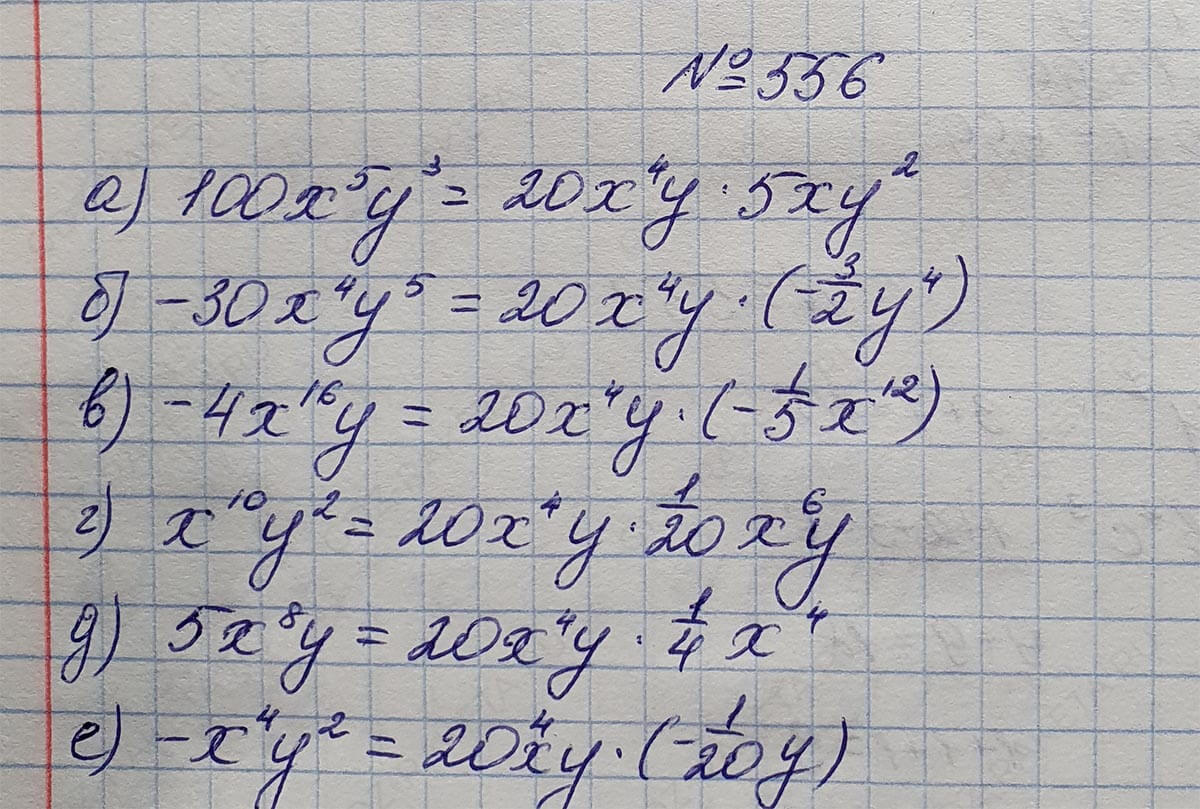 №556
а) 100x⁵y³ = 20x⁴y · 5xy²
б) -30x⁴y⁵ = 20x⁴y · (-3/2y⁴)
в) -4x¹⁶y = 20x⁴y · (-1/5x¹²)
г) x¹⁰y² = 20x⁴y · 1/20x⁶y
д) 5x⁸y = 20x⁴y · 1/4x⁴
е) -x⁴y² = 20x⁴y · (-1/20y)